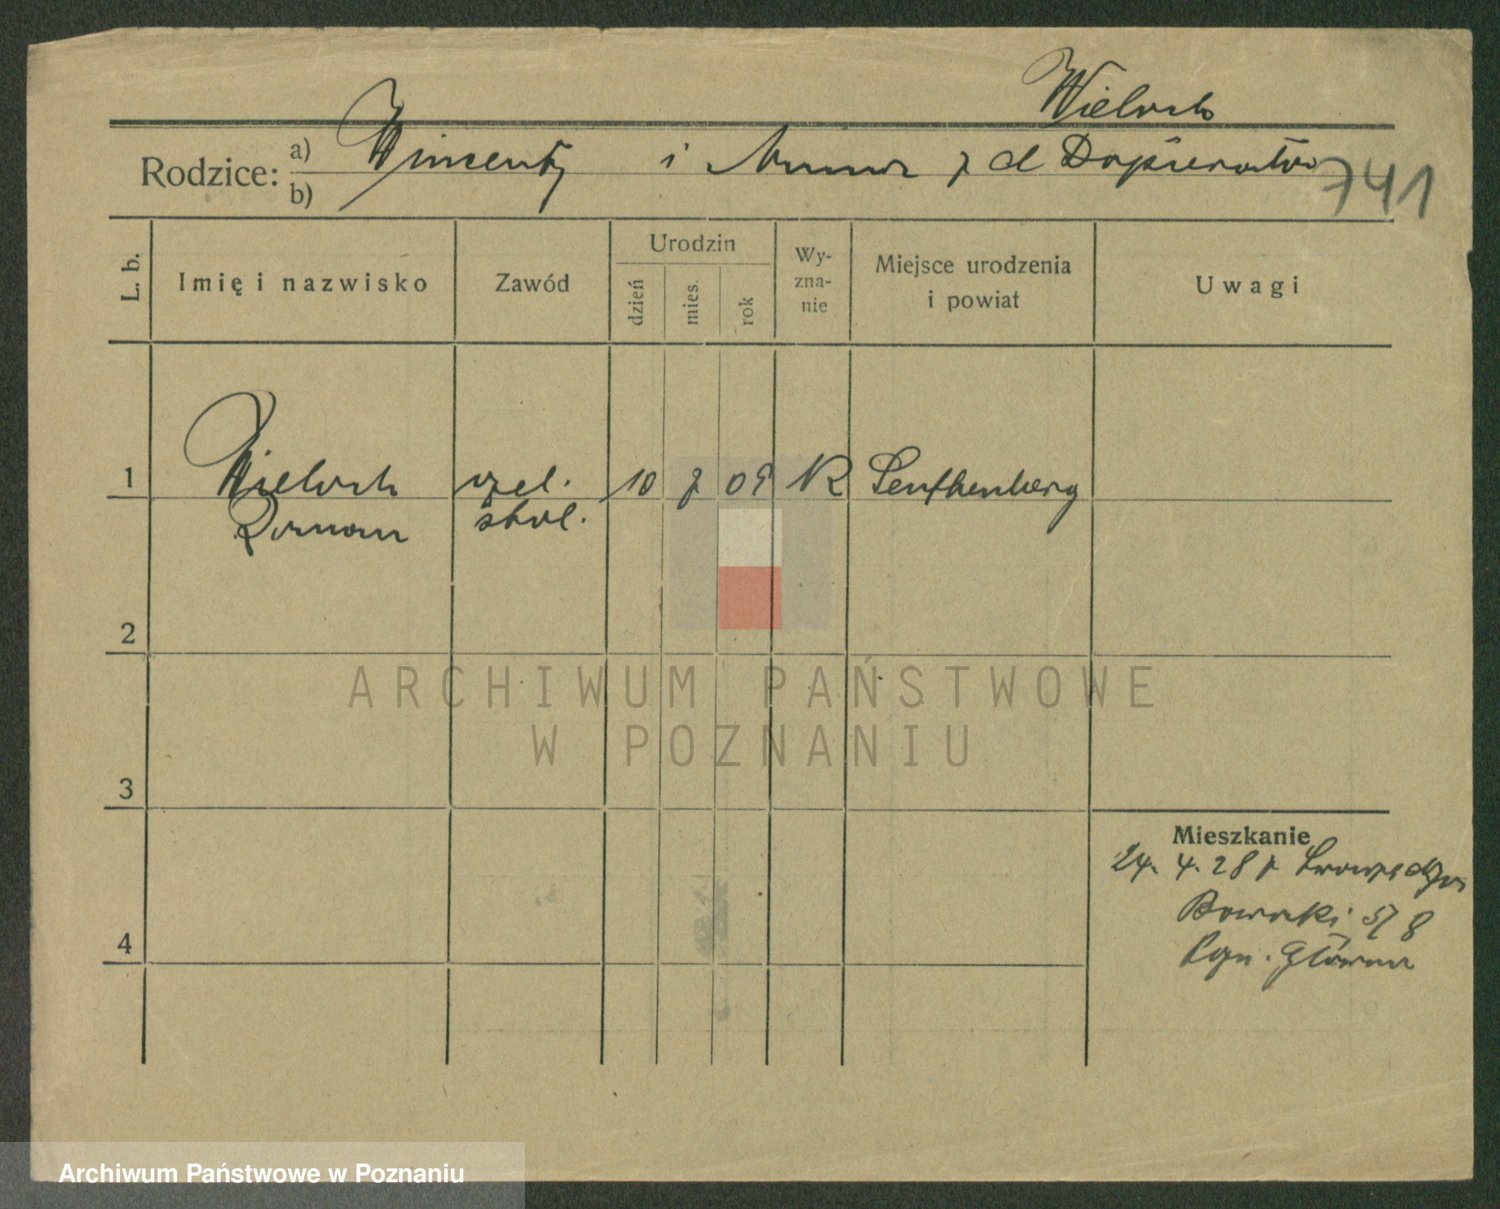 Wieloch
Rodzice: a) Wincenty i Anna z d Dopierała
b)
741
L. b.
Imię i nazwisko
Zawód
Urodzin
dzień
mies.
rok
Wy-
zna-
nie
Miejsce urodzenia
i powiat
Uwagi
1
Wieloch
Roman
czel.
stol.
10 7 09 rk Senftenberg
2
3
4
Mieszkanie
24. 4. 28 z
57 8
Pozn. Główna
ARCHIWUM PAŃSTWOWE
W POZNANIU
Archiwum Państwowe w Poznaniu